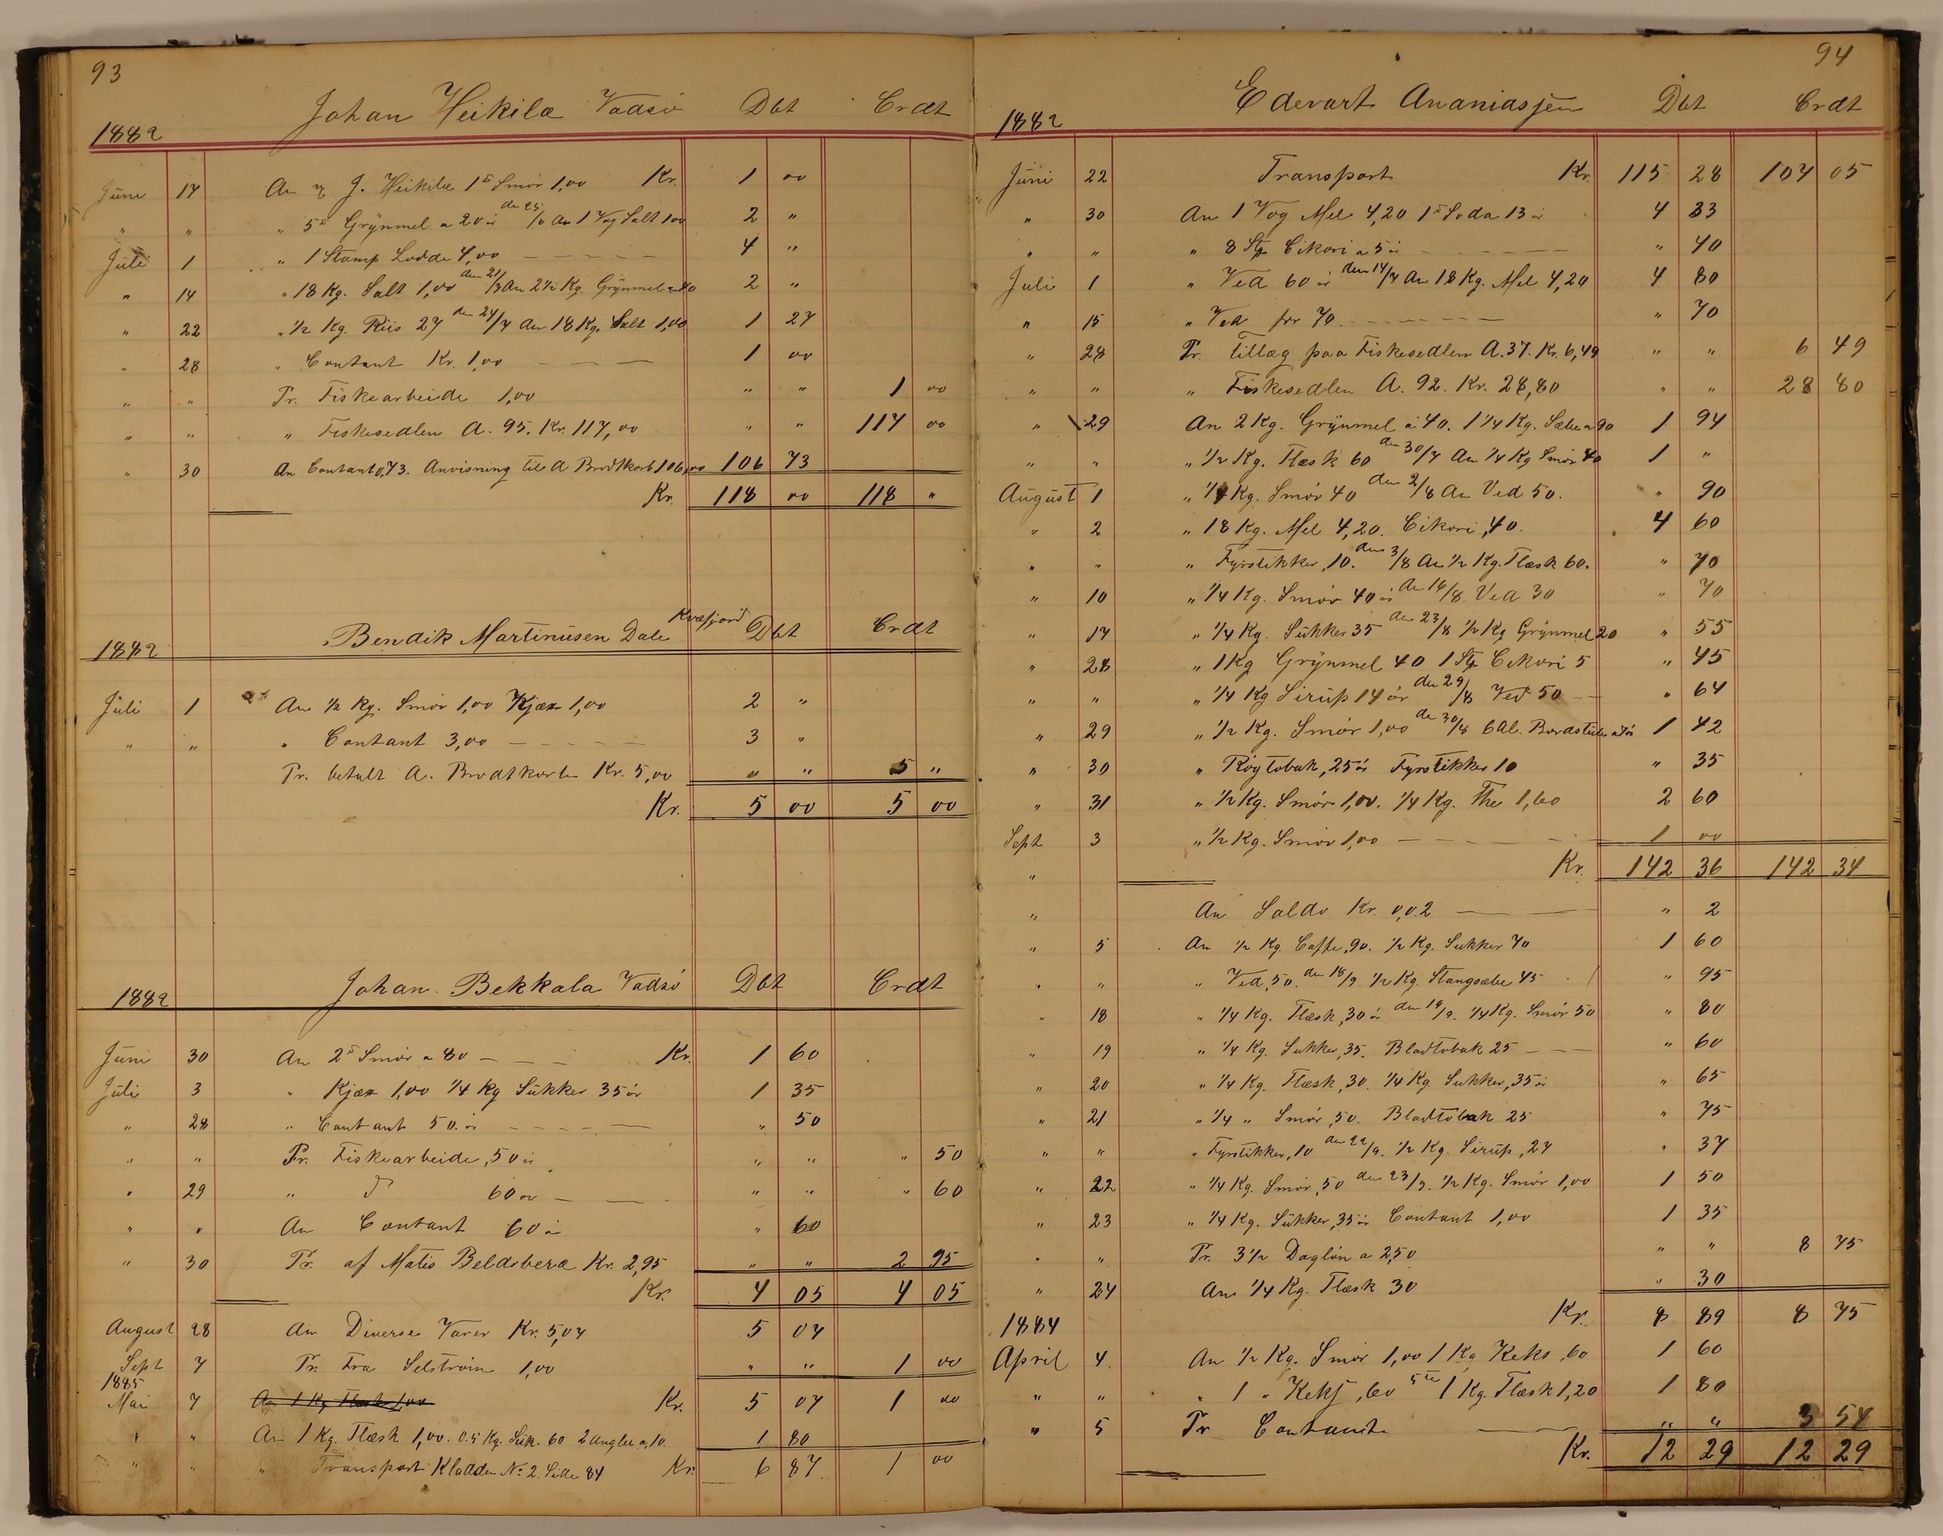 93
Johan Heikilæ Vadsö Dbt Crdt
1882
Juni 17 An J. Heikilæ 1 Smör 1,00 Kr. 1 00
" " " 5 Grÿnmel a 20 ör den 25/6 An 1 Vog Salt 1,00 2 "
Juli 1 " 1 Stamp Lodde 4,00 4 "
" 14 " 18 Kg. Salt 1,00 den 21/7 An 2½ Kg. Grÿnmel a 40 2 "
" 22 " ½ Kg. Riis 27 den 24/7 An 18 Kg. Salt 1,00 1 27
" 28 " Contant Kr. 1,00 1 00
" " Pr. Fiskearbeide 1,00 " " 1 00
" " " Fiskesedlen A. 95. Kr. 117,00 " " 117 00
" 30 An Contant 0,73. Anvisning til A Brodtkorb 106,00 106 73
Kr. 118 00 118 "
Bendik Martinusen Dale Kvæfjord Dbt Crdt
1882
Juli 1 An ½ Kg. Smör 1,00 Kjæx 1,00 2 "
" " " Contant 3,00 3 "
Pr. betalt A. Brodtkorb Kr. 5,00 " " 5 "
Kr. 5 00 5 00
Johan Bekkala Vadsö Dbt Crdt
1882
Juni 30 An 2 Smör a 80 Kr. 1 60
Juli 3 " Kjæx 1,00 ¼ Kg Sükker 35 ör 1 35
" 28 " Contant 50 ör " 50
" " Pr. Fiskearbeide, 50 ör " " " 50
" 29 " 60 ör " " " 60
" " An Contant 60 ör " 60
" 30 Pr. af Matis Beldsberæ Kr. 2,95 " " 2 95
Kr. 4 05 4 05
August 28 An Diverse Varer Kr. 5,07 5 07
Sept 7 Pr. Fra Selström 1,00 " " 1 00
1885
Mai 7 An 1 Kg Flæsk 1,00 Kr. 5 07 1 00
" " An 1 Kg. Flæsk 1,00. 0.5 Kg. Suk. 60 2 Angler a 10. 1 80
" " " Transport Kladden No 2. Side 84 Kr. 6 87 1 00
94
Edevart Ananiasjen Dbt Crdt
1882
Juni 22 Transport Kr. 115 28 107 05
" 30 An 1 Vog Mel 4,20 1 Soda 13 ör 4 33
" " " 8 Stp Cikori a 5 ör " 40
Juli 1 " Ved 60 ör den 14/7 An 18 Kg. Mel 4,20 4 80
" 15 " Ved for 70 " 70
" 28 Pr. Tillæg paa Fiskesedlen A. 37. Kr. 6,49 " " 6 49
" " " Fiskesedlen A. 92. Kr. 28,80 " " 28 80
" 29 An 2 Kg. Grÿnmel a 40. 1¼ Kg. Sæbe a 90 1 94
" " " ½ Kg. Flæsk 60 den 30/7 An ¼ Kg Smör 40 1 "
August 1 " ¼ Kg. Smör 40 den 2/8 An Ved 50. " 90
" 2 " 18 Kg. Mel 4,20. Cikori, 40. 4 60
" " " Fyrstikker, 10. den 3/8 An ½ Kg. Flæsk 60. " 70
" 10 " ¼ Kg. Smör 40 ör den 16/8. Ved 30 " 70
" 17 " ¼ Kg. Sükker 35 den 23/8 ½ Kg Grÿnmel 20 " 55
" 28 " 1 Kg Grÿnmel 40 1 Stp Cikori 5 " 45
" " " ¼ Kg Sirup 14 ör den 29/8 Ved 50 " 64
" 29 " ½ Kg. Smör 1,00 den 30/8 6 Al. Bordstüde a 7 ör 1 42
" 30 " Rögtobak, 25 ör Fyrstikker 10 " 35
" 31 " ½ Kg. Smör 1,00. ¼ Kg. The 1,60 2 60
Sept 3 " ½ Kg. Smör 1,00 1 00
" Kr. 142 36 142 34
" An Saldo Kr. 0,02 " 2
" 5 An ½ Kg Caffe, 90. ½ Kg. Sukker 70 1 60
" " " Ved, 50. den 18/9. ½ Kg. Stangsæbe 45 " 95
" 18 " ¼ Kg. Flæsk, 30 ör den 19/9. ¼ Kg. Smör 50 " 80
" 19 " ¼ Kg. Sukker, 35. Bladtobak 25 " 60
" 20 " ¼ Kg. Flæsk, 30. ¼ Kg. Sukker, 35 ör " 65
" 21 " ¼ " Smör, 50. Bladtobak 25 " 75
" " " Fyrstikker, 10 den 22/9. ½ Kg. Sirup, 27 " 37
" 22 " ¼ Kg. Smör, 50 den 23/9. ½ Kg. Smör 1,00 1 50
" 23 " ¼ Kg. Sükker, 35 ör Contant 1,00 1 35
" " Pr. 3½ Daglön a 2,50 " " 8 75
" 24 An ¼ Kg. Flæsk 30 " 30
1884 Kr. 8 89 8 75
April 4. An ½ Kg. Smör 1,00 1 Kg Keks, 60 1 60
" " " 1 " Keksj, 60 5te 1 Kg. Flæsk 1,20 1 80
" 5 Pr Contant " " 3 54
Kr. 12 29 12 29